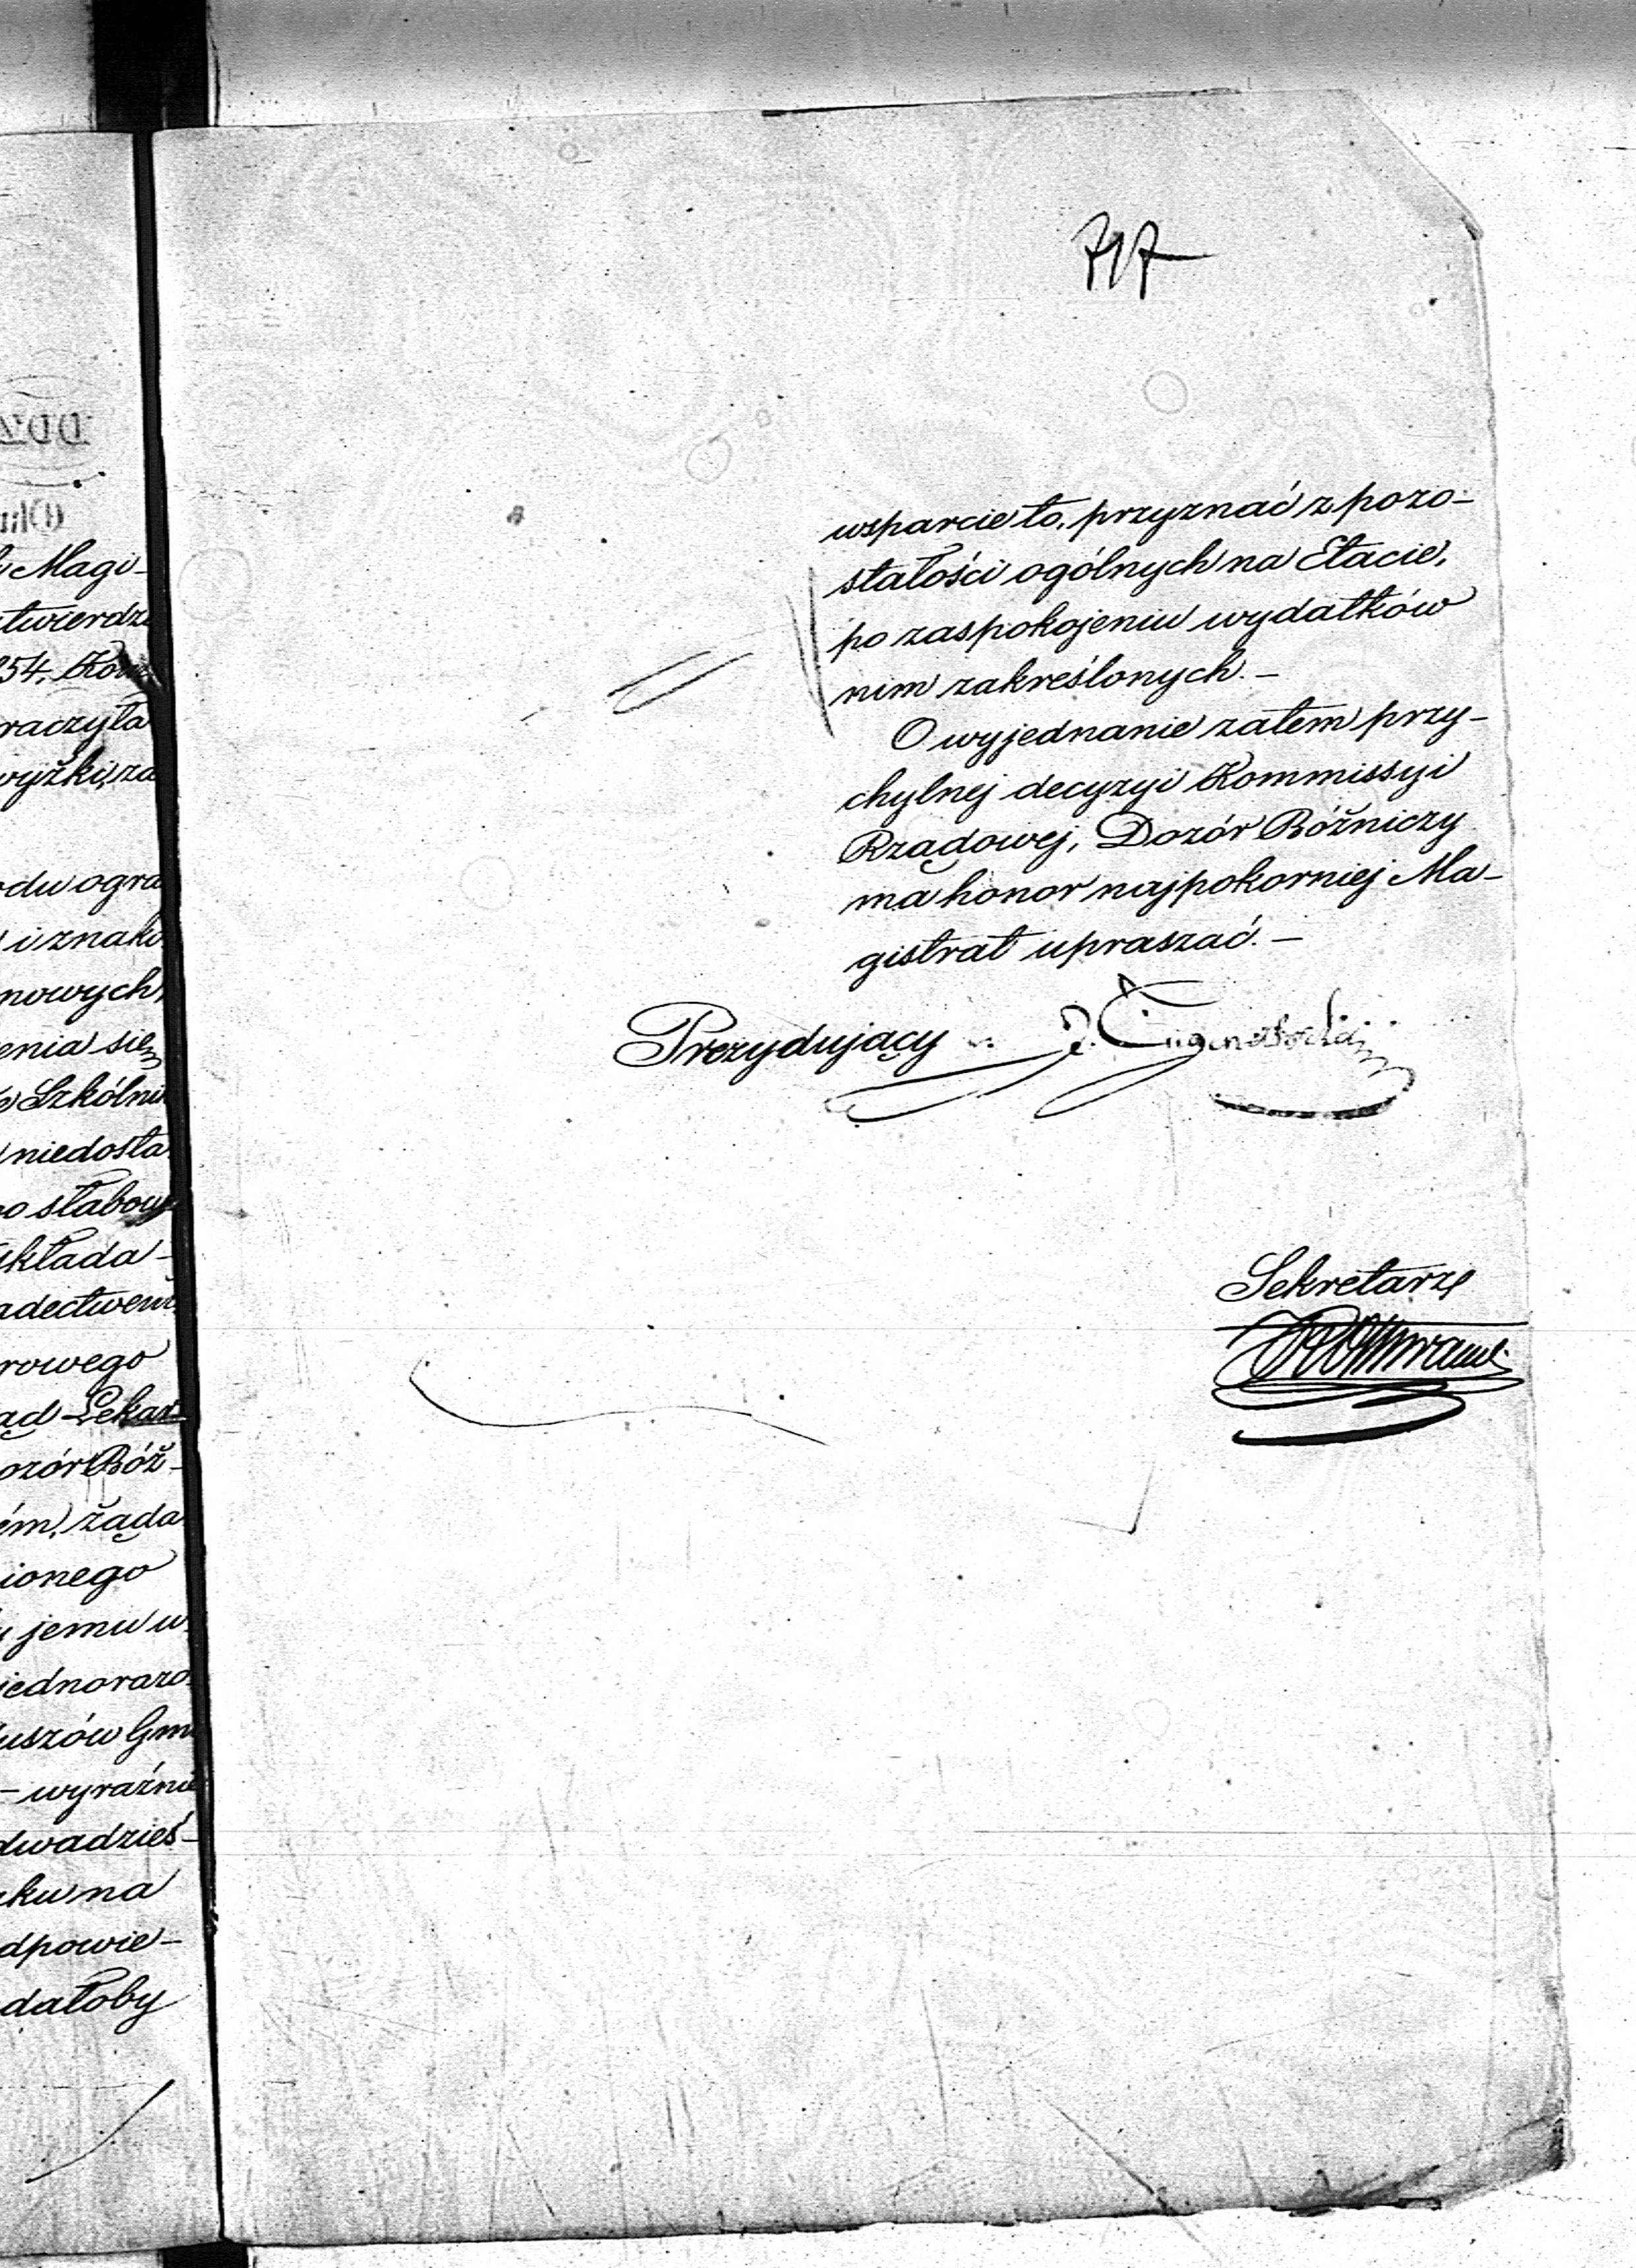 Magi-
twierdz
54, Kom
raczyła
wyżki, za
du ogra
i znako
nowych
enia się
Szkólni
niedosta
o słabow
kłada-
adectwem
rowego
ad Lekar
ozór Bóż-
ém, żąda
ionego
jemu w
jednorazo
uszów Gm
- wyraźnie
dwadzieś-
ku na
dpowie-
dałoby
717
wsparcie to, przyznać z pozo-
stałości ogólnych na Etacie,
po zaspokojeniu wydatków
nim zakreślonych. -
O wyjednanie zatem przy-
chylnej decyzyi Kommissyi
Rządowej, Dozór Bóżniczy
ma honor najpokorniej Ma-
gistrat upraszać. -
Prezydujący
Sekretarz